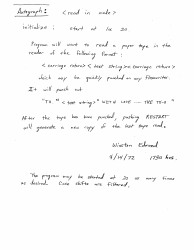 Autograph 1 <read in mode>
Initialize: Start at loc 20.
Program will want to read a paper tape in the
reader of the following format:
<carriage return> <text string> <carriage return>
which may be quickly punched on any Flexowriter.
It will punch out
"TO, " <text string> " WITH LOVE - THE TX-0 "
After the tape has been punched, pushing RESTART
will generate a new copy of the last tape read.
Winston Edmond
8/14/72 1730 hrs.
The program may be started at 20 as many times
as desired. Case shifts are filtered.